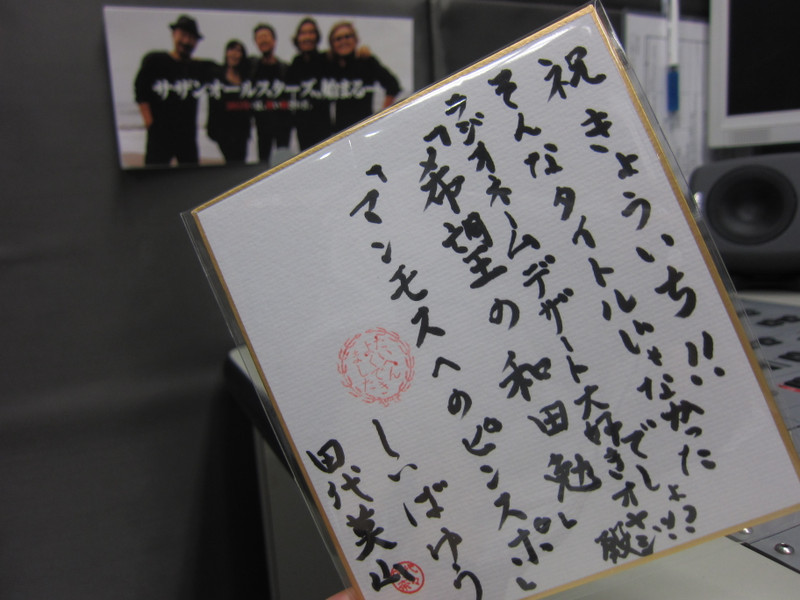 サザンオールスターズ、始まるー
祝 きょういち!!
そんなタイトルじゃなかったでしょ?
ラジオネームデザート大好きオヤジ殿
「希望の和田勉」
「マンモスへのピンスポ」
しいばゆう
田代英山